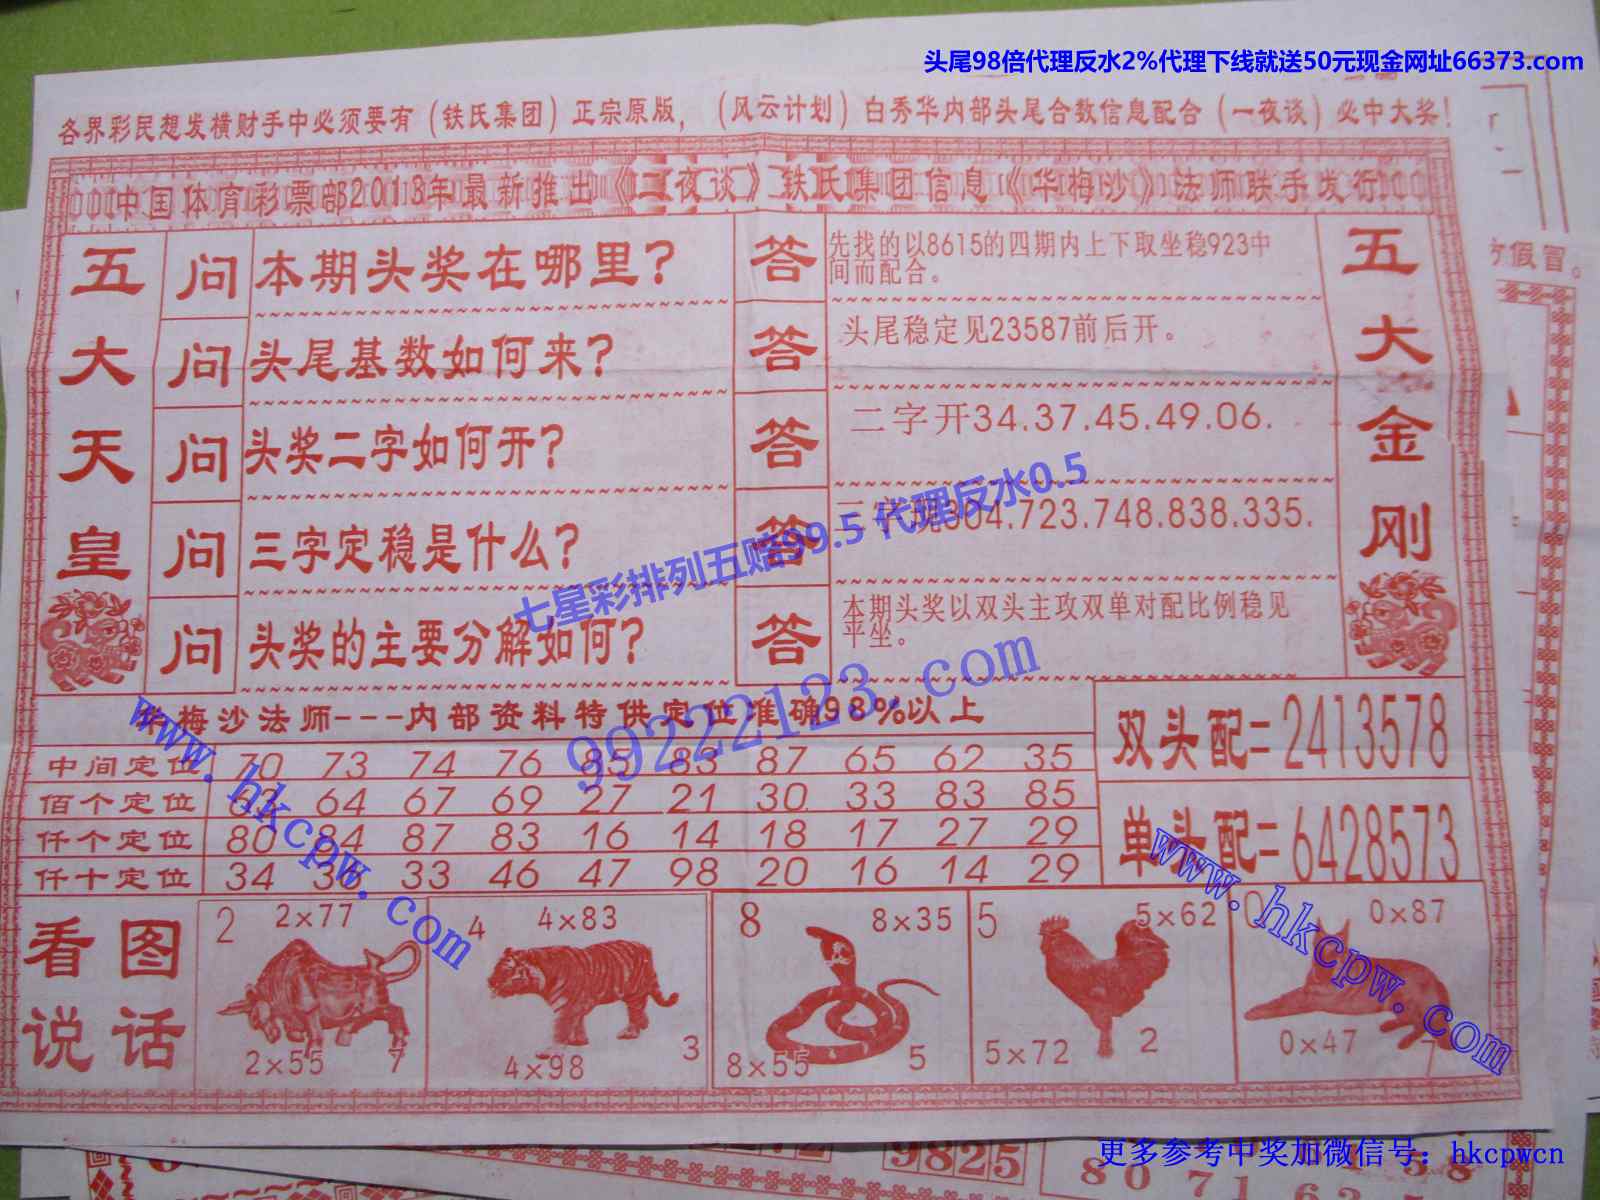 头尾98倍代理反水2%代理下线就送50元现金网址66373.com
各界彩民想发横财手中必须要有（铁氏集团）正宗原版，（风云计划）白秀华内部头尾合数信息配合（一夜谈）必中大奖！
中国体育彩票部2013年最新推出《一夜谈》铁氏集团信息《华梅沙》法师联手发行
五大天皇
问 本期头奖在哪里？
答 先找的以8615的四期内上下取坐稳923中
间而配合。
问 头尾基数如何来？
答 头尾稳定见23587前后开。
问 头奖二字如何开？
答 二字开34.37.45.49.06.
问 三字定稳是什么？
答 三字现304.723.748.838.335.
问 头奖的主要分解如何？
答 本期头奖以双头主攻双单对配比例稳见
平坐。
五大金刚
七星彩排列五赔99.5 代理反水0.5
99222123.com
华梅沙法师---内部资料特供定位准确98%以上
中间定位 70 73 74 76 85 83 87 65 62 35
佰个定位 63 64 67 69 27 21 30 33 83 85
仟个定位 80 84 87 83 16 14 18 17 27 29
仟十定位 34 36 33 46 47 98 20 16 14 29
双头配=2413578
单头配=6428573
www.hkcpw.com
www.hkcpw.com
看图说话
2 2×77
2×55 7
4 4×83
4×98 3
8 8×35
8×55 5
5 5×62
5×72 2
0 0×87
0×47 7
分假冒。
9825
更多参考中奖加微信号：hkcpwcn